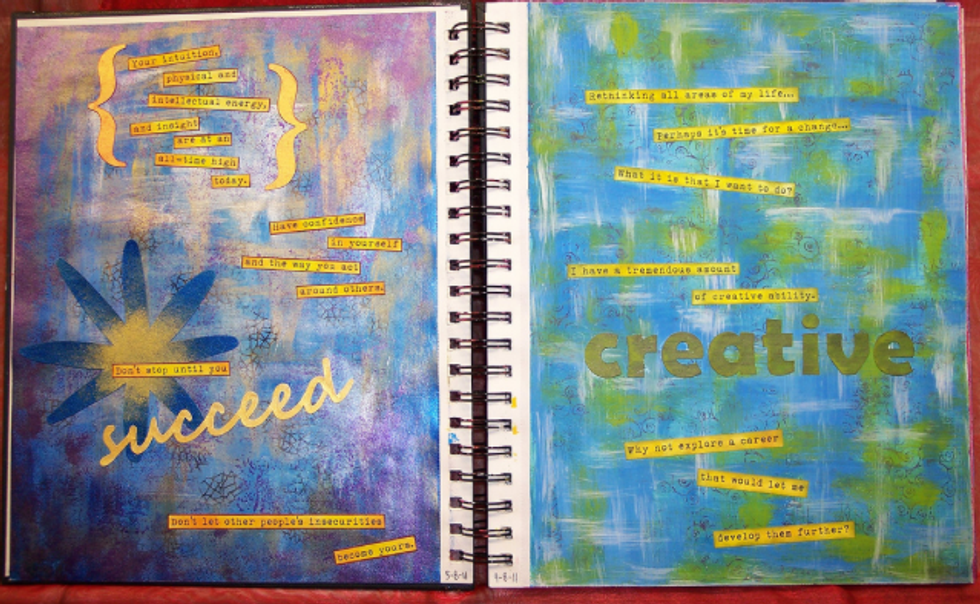 Your intuition,
physical and
intellectual energy,
and insight
are at an
all-time high
today.
Have confidence
in yourself
and the way you act
around others.
Don't stop until you
succeed
Don't let other people's insecurities
become yours.
Rethinking all areas of my life...
Perhaps it's time for a change...
What it is that I want to do?
I have a tremendous amount
of creative ability.
creative
Why not explore a career
that would let me
develop them further?